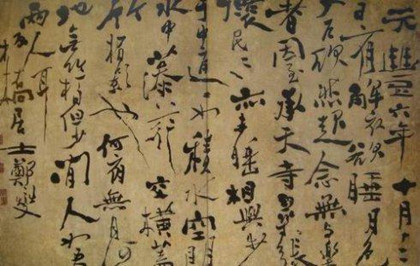 元豐六年十月十二
日夜解衣欲睡月色
入戶欣然起念無与樂
者因至承天寺尋張
懷民々亦未睡相與步
于中庭如積水空明
水中藻荇交橫蓋
竹柏影也何夜無月何
地無竹柏但少閒人如吾
兩人耳
板橋居士鄭燮